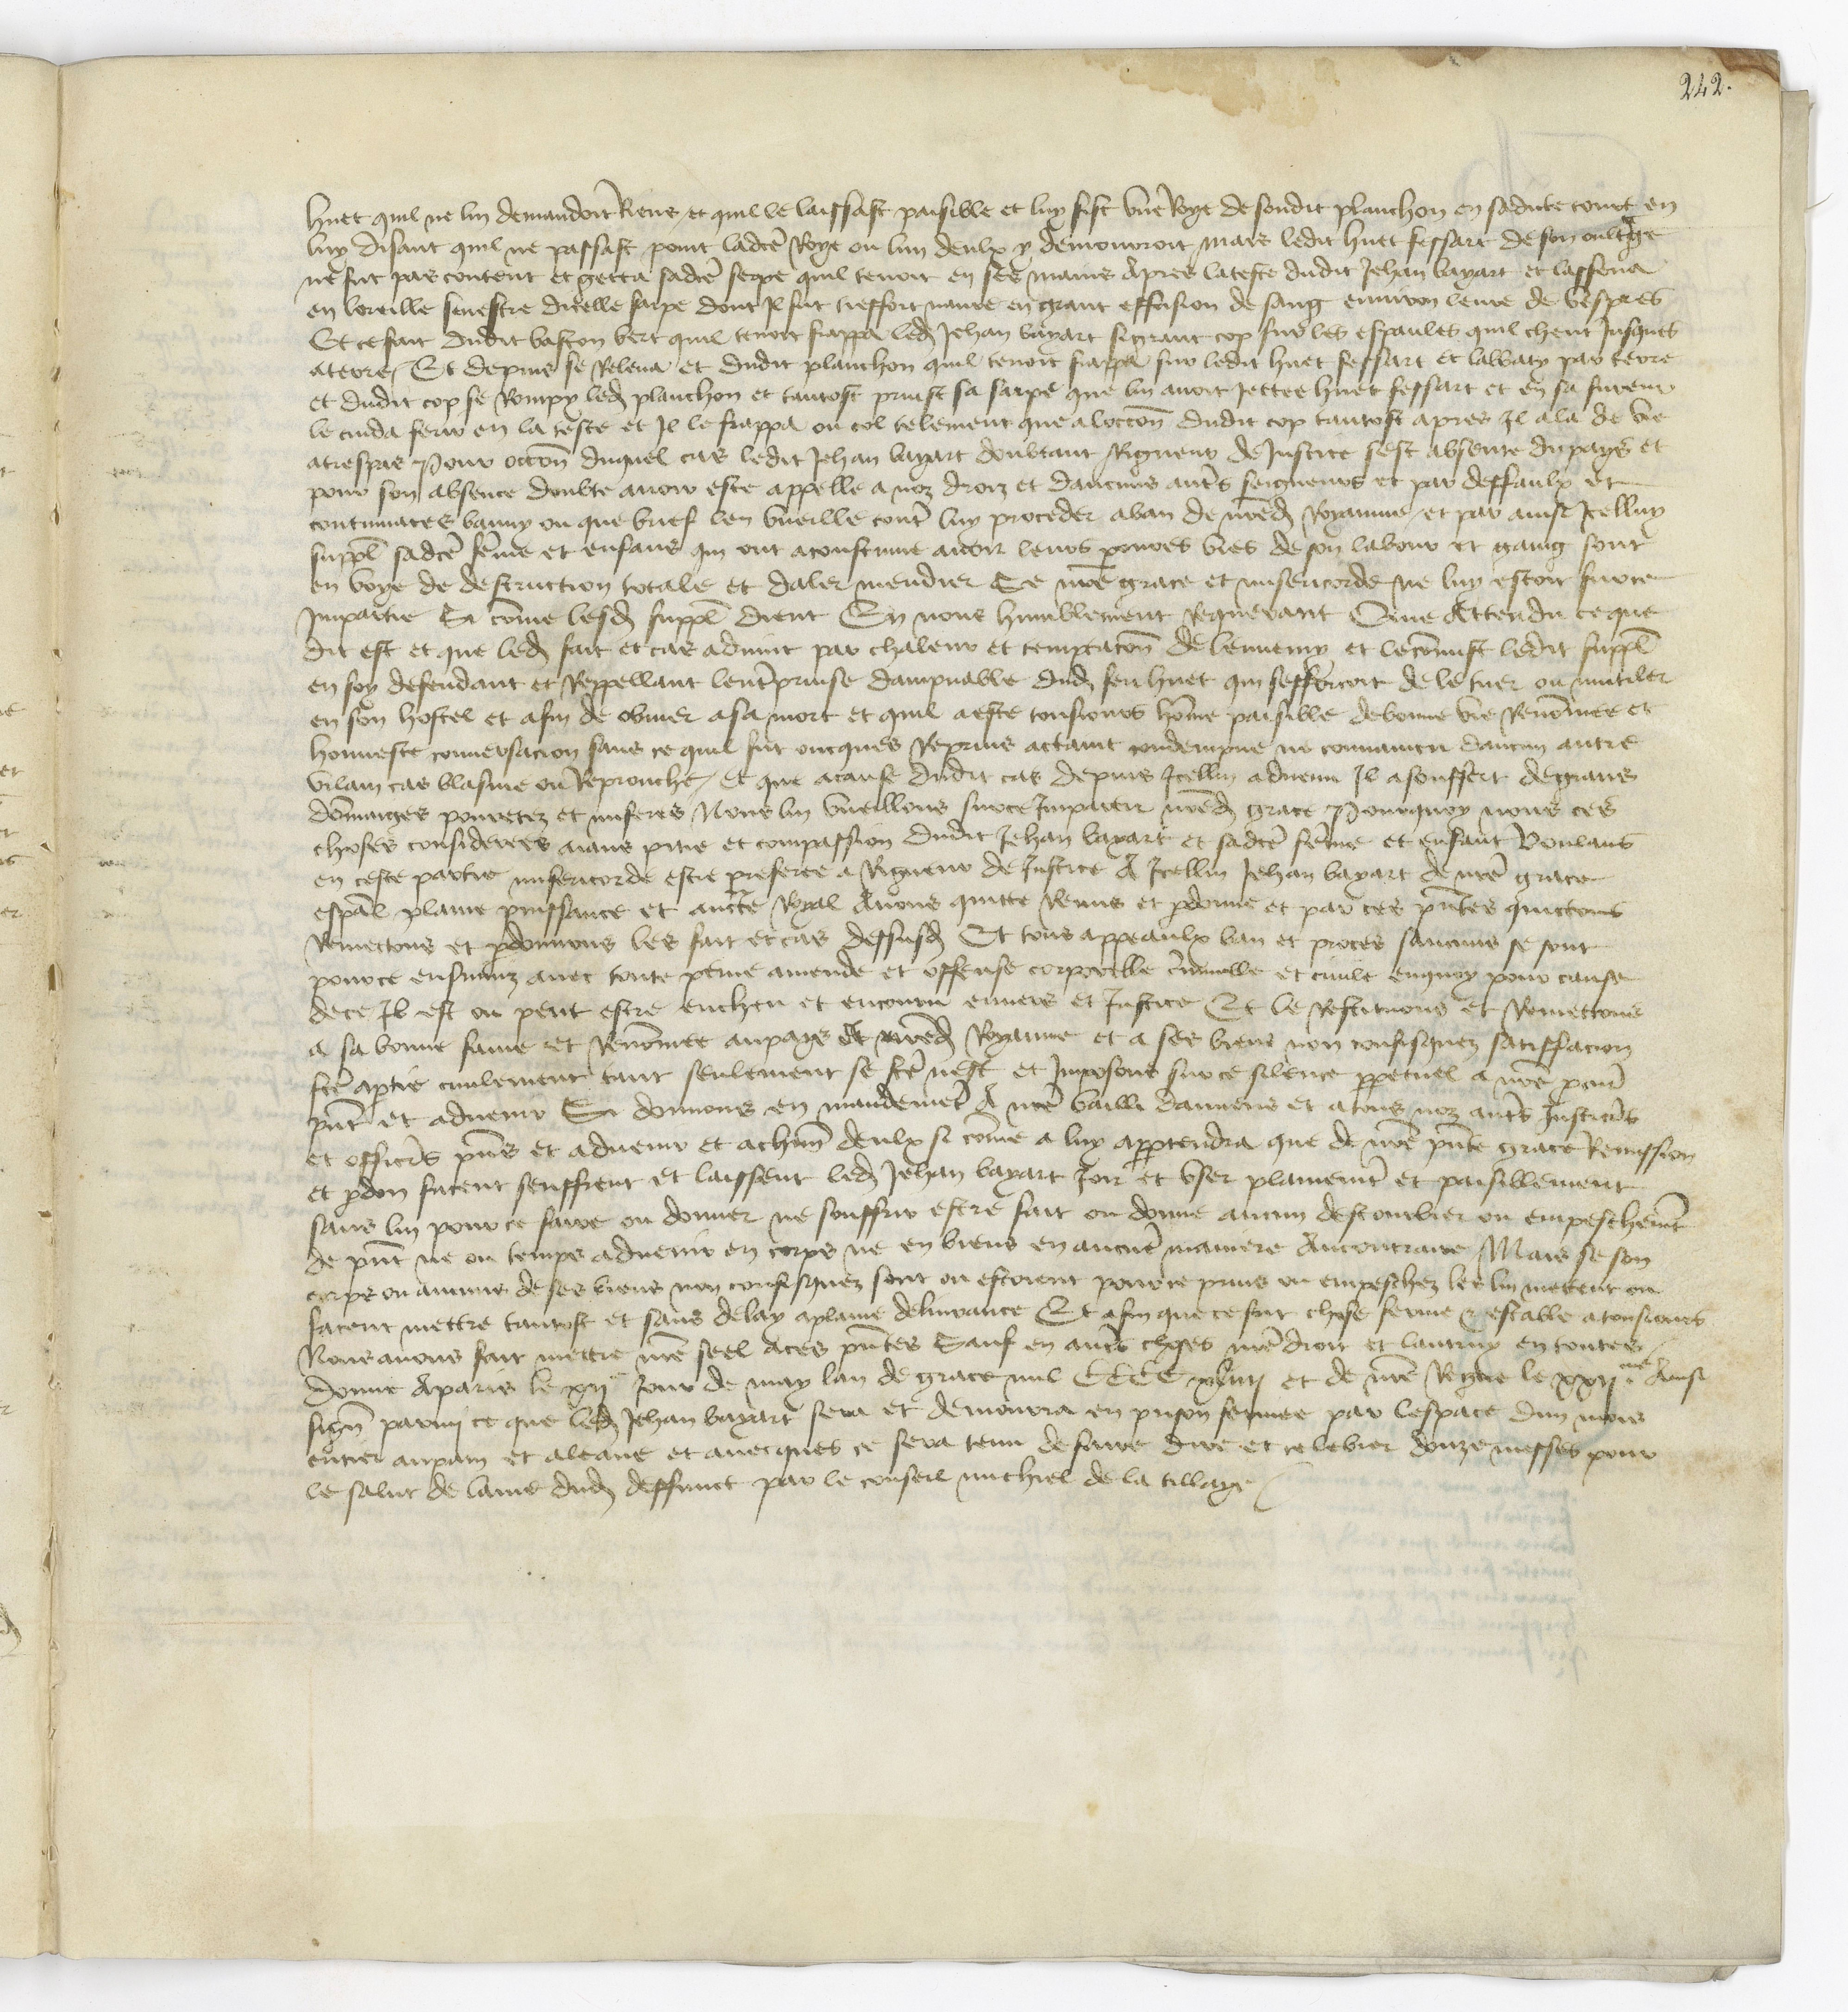 242.
huet quil ne lui demandoit Riens et quil le laissast paisible et luy fist vne Roye de sondit planchon en sadicte court en
luy disant quil ne passast point ladce Roye ou lun deulx y demouroit mais ledit huet fessart de son oultge
ne fut pas content et getta sadce serpe quil tenoit en ses mains Apres la teste dudit Jehan bayart et lassena
en loreille senestre dicelle sarpe dont Il fut treffort naure en grant effusion de sang enuiron leure de vespres
Et ce fait dudit baston vert quil tenoit frappa led Jehan bayart si grant cop sur les espaules quil cheut Jusques
a terre Et depuis se Releua et dudit planchon quil tenoit frappa sur ledit huet fessart et labbaty par terre
et dudit cop se Rompy led planchon et tantost prinst sa sarpe que lui auoit Jettee huet fessart et en sa fureur
le cuida ferir en la teste et Il le frappa ou col telement que a loccon dudit cop tantost apres Il ala de vie
a trespas Pour occon duquel cas ledit Jehan bayart doubtant Rigueur de Justice sest absente du pays et
pour son absence doubte auoir este appelle a noz droiz et daucuns autrs seigneurs et par deffaulx et
contumaces banny ou que brief len vueille contr luy proceder a ban de nred Royaume et par ainsi Icelluy
suppl sadce feme et enfans qui ont acoustume auoir leurs poures vies de son labour et gaing sont
en voye de destruction totale et daler mendier Se nre grace et misericorde ne luy estoit surce
Impartie Si come lesd suppl dient En nous humblement Requerant Que Attendu ce que
dit est et que led fait et cas aduint par chaleur et temptacon de lennemy et le comist ledit suppl
en soy defendant et Reppellant lentrprinse dampnable dud feu huet qui sefforcoit de le tuer ou mutiler
en son hostel et afin de obuier a sa mort et quil a este tousiours home paisible de bonne vie Renomee et
honneste conuersacion sans ce quil fut oncques Reprins actaint condempne ne conuaincu daucun autre
vilain cas blasme ou Reprouche Et que a cause dudit cas depuis Icellui aduenu Il a souffert de grans
domaiges pouretez et miseres Nous lui vueillons surce Impartir nred grace Pourquoy nous ces
choses considerees aians pitie et compassion dudit Jehan bayart et sadce feme et enfant Voulans
en ceste partie misericorde estre preferee a Rigueur de Justice A Icellui Jehan bayart de nre grace
espal plaine puissance et aucte Royal Auons quitte Remis et pdonne et par ces pntes quictons
Remectons et pdonnons les fait et cas dessusd Et tous appeaulx ban et proces saucuns se sont
pource ensuiuiz auec toute peine amende et offense corporelle criminelle et ciuile enquoy pour cause
de ce Il est ou peut estre encheu et encouru enuers et Justice Et le Restituons et Remettons
a sa bonne fame et Renomee au pays et nred Royaume et a ses biens non confisquez satiffacion
fce a ptie ciuilement tant seulement se fce nest et Imposons sur ce silence ppetuel a nre procur
pnt et aduenir Si donnons en mandement A nre bailli damiens et a tous noz autrs Justicrs
et officrs pns et aduenir et a chun deulx si come a luy appartendra que de nre pnte grace Remission
et pdon facent seuffrent et laissent led Jehan bayart Joir et vser plainement et paisiblement
sans lui pource faire ou donner ne souffrir estre fait ou donne aucun destourbier ou empeschement
de pnt ne ou temps aduenir en corps ne en biens en aucune maniere Au contraire Mais se son
corps ou aucuns de ses biens non confisquez sont ou estoient pource prins ou empeschez les lui mettent ou
facent mettre tantost et sans delay a plaine deliurance Et afin que ce soit chose ferme et estable a tousiours
Nous auons fait mettre nre seel a ces pntes Sauf en autrs choses nre droit et lautruy en toutes
Donne A paris le xije Jour de may lan de grace mil CCCC xliiij et de nre Regne le xxijme Ainsi
signe parmi ce que led Jehan bayart sera et demourra en prison fermee par lespace dun mois
entier au pain et a leaue et auecques ce sera tenu de faire dire et celebrer douze messes pour
le salut de lame dud deffunct par le conseil michiel de la tillaye